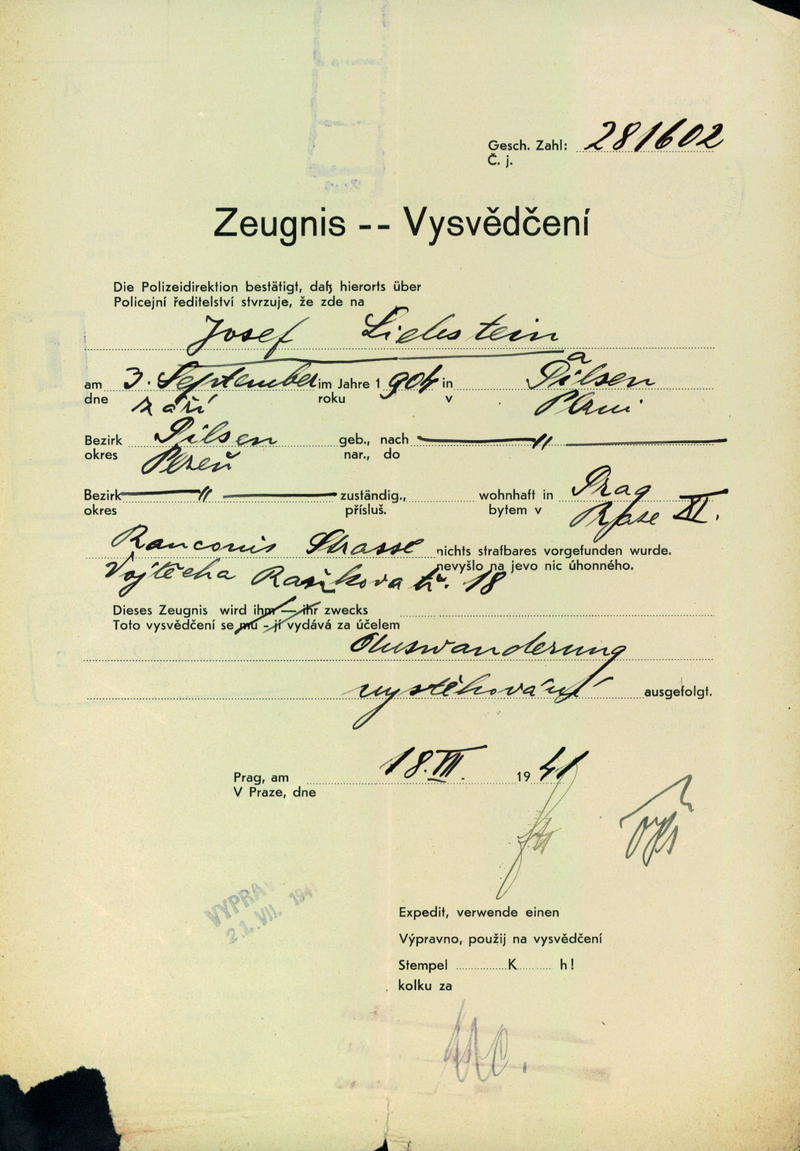 Gesch. Zahl: 281602
Č. j.
Zeugnis -- Vysvědčení
Die Polizeidirektion bestätigt, daß hierorts über
Policejní ředitelství stvrzuje, že zde na
Josef Liebstein
am 3. September im Jahre 1904 in Pilsen
dne září roku v Plzni
Bezirk Pilsen geb., nach —— " ——
okres Plzeň nar., do
Bezirk —— " —— zuständig., wohnhaft in Prag
okres přísluš. bytem v Praze XI.
Ranconis Strasse nichts strafbares vorgefunden wurde.
nevyšlo na jevo nic úhonného.
Vojtěcha Raňkova č. 18
Dieses Zeugnis wird ihm — ihr zwecks
Toto vysvědčení se mu - jí vydává za účelem
Auswanderung
vystěhování ausgefolgt.
Prag, am 18. VII. 1941
V Praze, dne
21. VII. 194
Expedit, verwende einen
Výpravno, použij na vysvědčení
Stempel K h!
kolku za